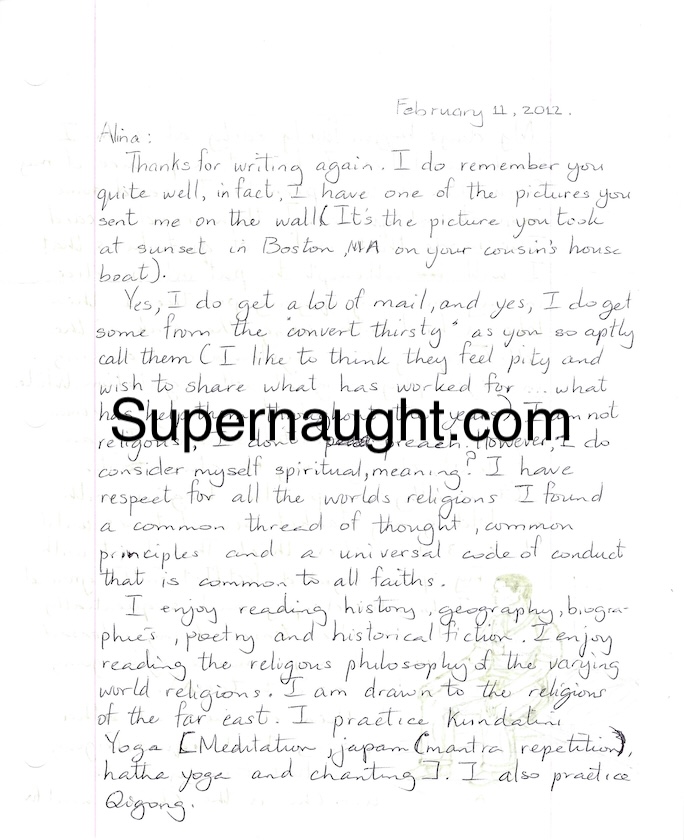 February 11, 2012.
Alina:
Thanks for writing again. I do remember you
quite well, in fact, I have one of the pictures you
sent me on the wall (It's the picture you took
at sunset in Boston, MA on your cousin's house
boat).
Yes, I do get a lot of mail, and yes, I do get
some from the "convert thirsty" as you so aptly
call them (I like to think they feel pity and
wish to share what has worked for ... what
has not
Supernaught.com
religious I don't preach. However, I do
consider myself spiritual, meaning? I have
respect for all the worlds religions I found
a common thread of thought, common
principles and a universal code of conduct
that is common to all faiths.
I enjoy reading history, geography, biogra-
phies, poetry and historical fiction. I enjoy
reading the religous philosophy of the varying
world religions. I am drawn to the religions
of the far east. I practice Kundalini
Yoga [Meditation, japam (mantra repetition),
hatha yoga and chanting]. I also practice
Qigong.